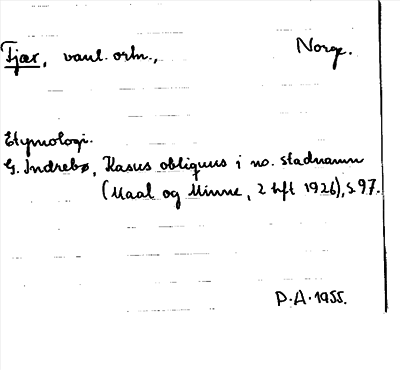 Fjær, vanl. ortn., Norge.
Etymologi.
G. Indrebø, Kasus obliquus i no. stadnamn
(Maal og Minne, 2 hft 1926), s. 97.
P.A. 1955.